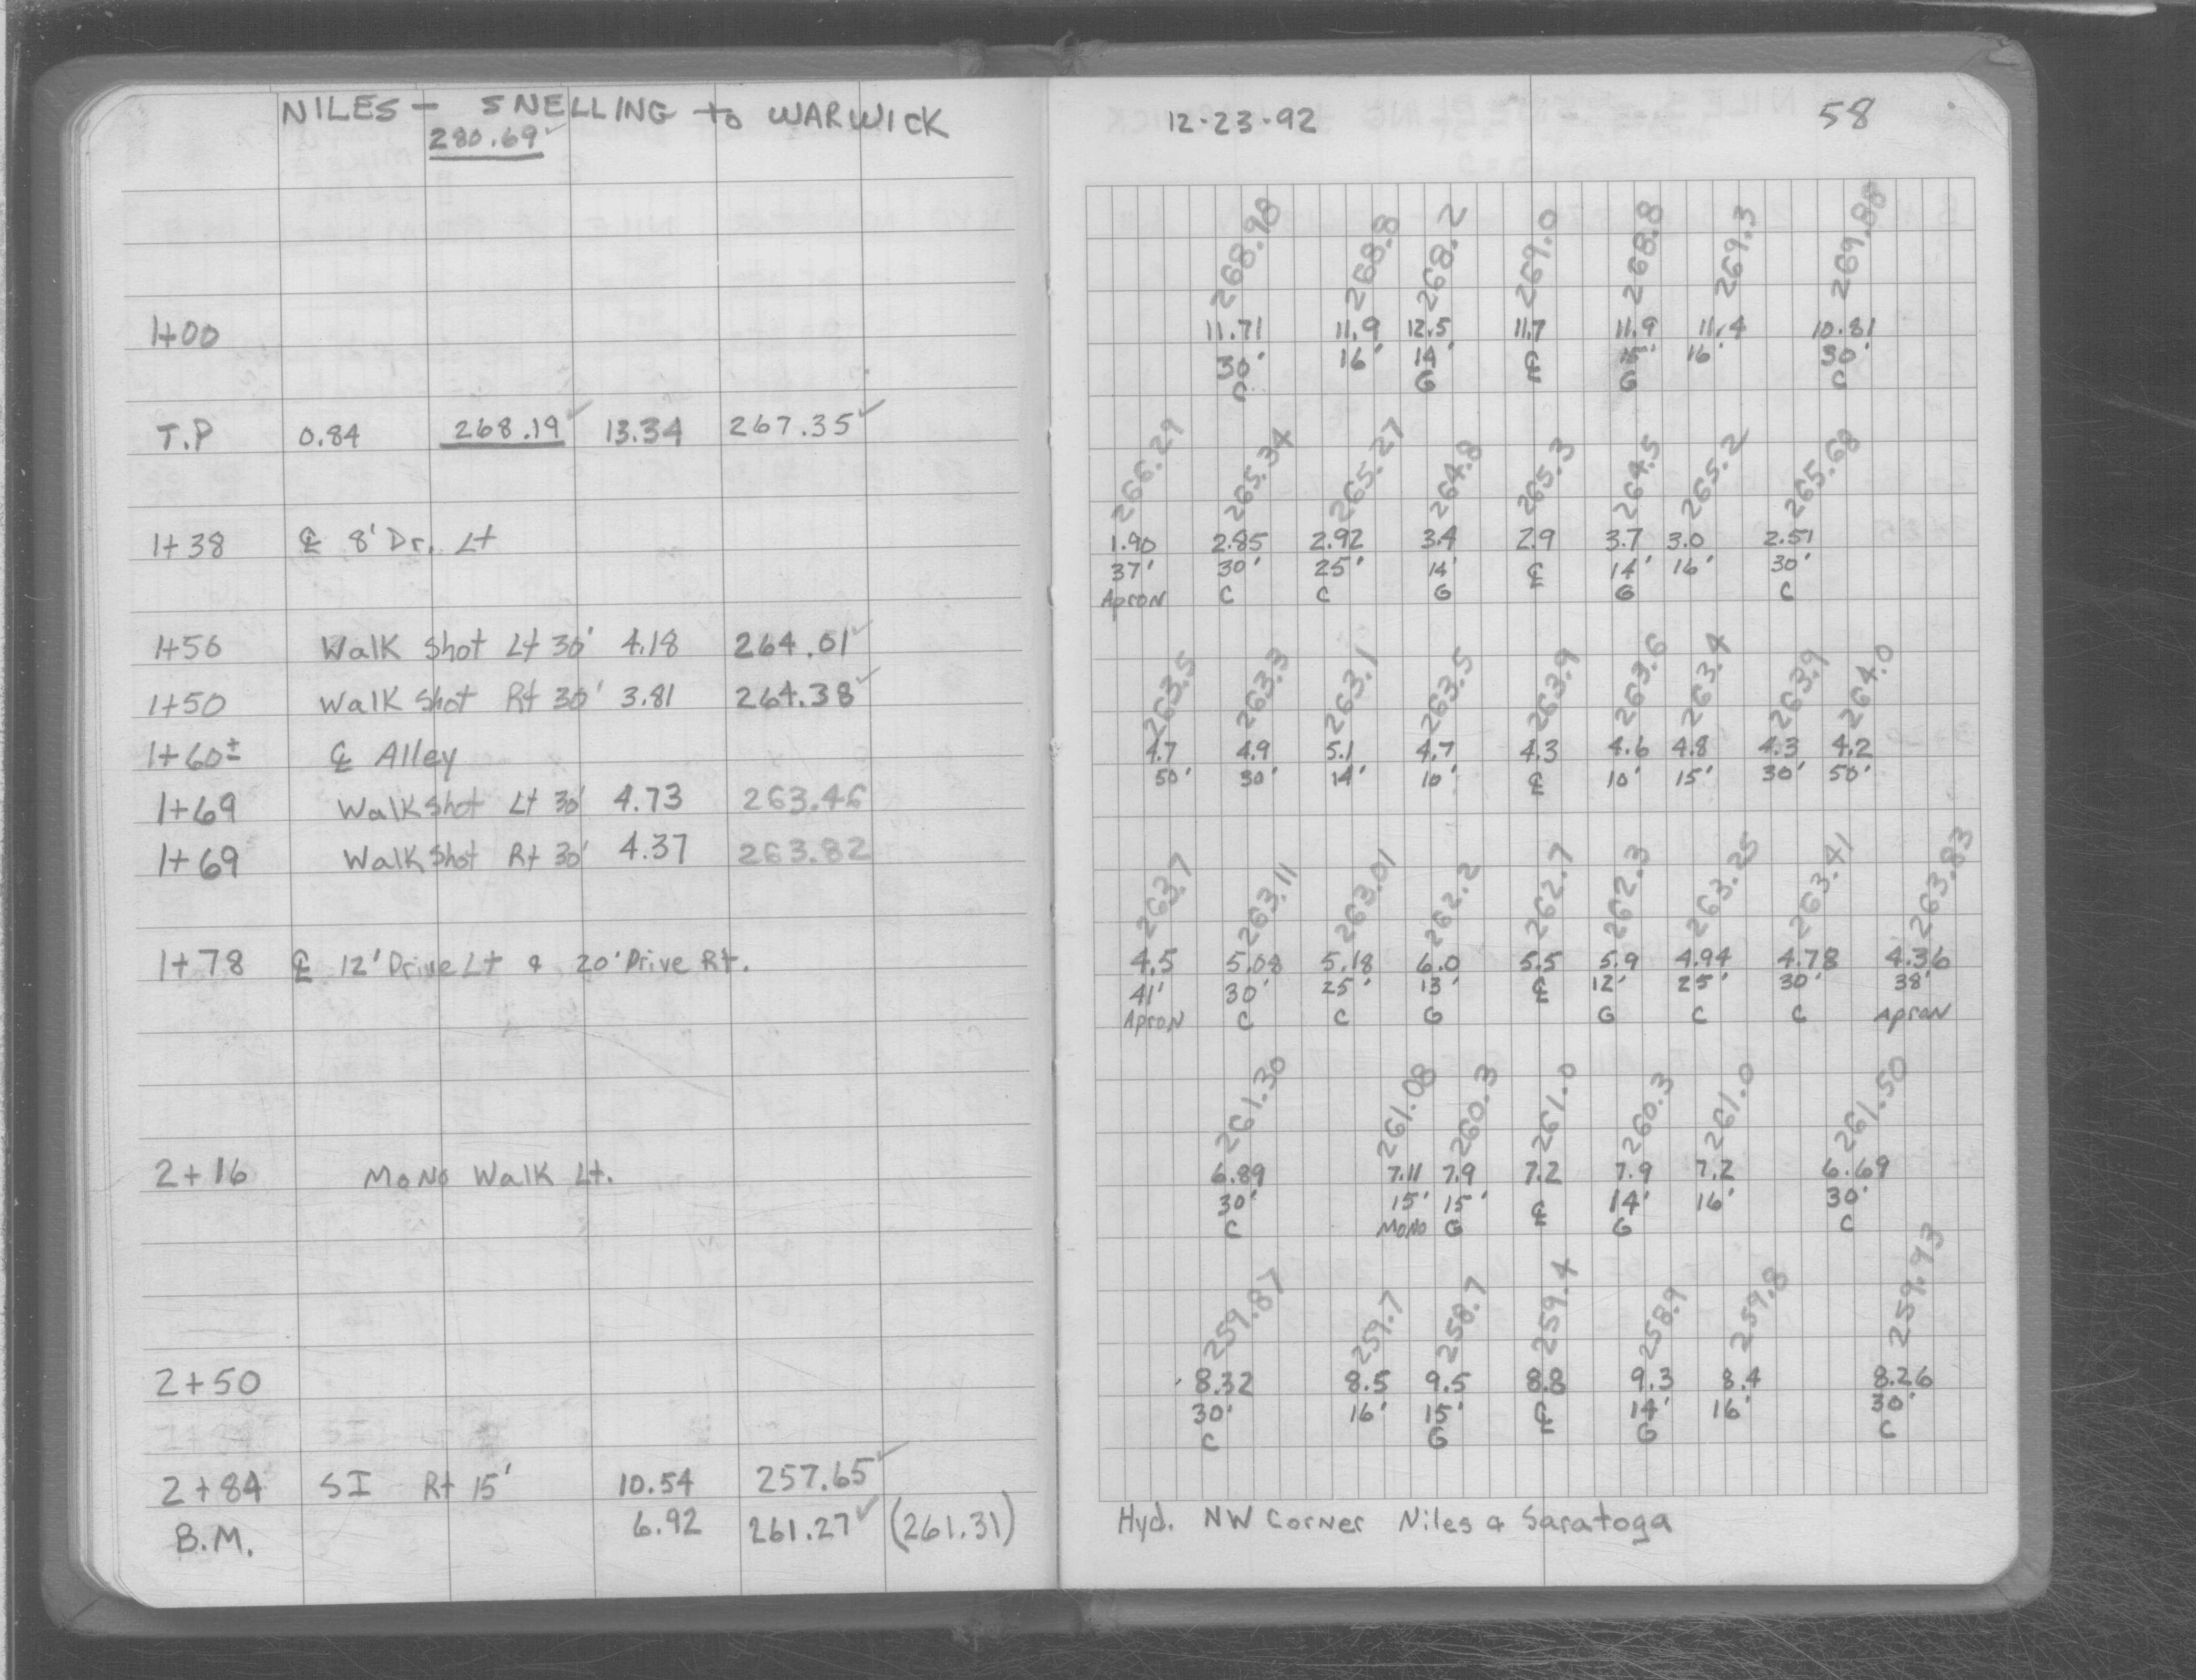 NILES - SNELLING to WARWICK
280.69✓
1+00
T.P 0.84 268.19✓ 13.34 267.35✓
1+38 ℄ 8' Dr. Lt
1+50 Walk Shot Lt 30' 4.18 264.01✓
1+50 Walk Shot Rt 30' 3.81 264.38✓
1+60± ℄ Alley
1+69 Walk Shot Lt 30' 4.73 263.46
1+69 Walk Shot Rt 30' 4.37 263.82
1+78 ℄ 12' Drive Lt & 20' Drive Rt.
2+16 MONO Walk Lt.
2+50
2+84 SI Rt 15' 10.54 257.65✓
B.M. 6.92 261.27✓ (261.31)
12-23-92 58
268.98 268.8 268.2 269.0 268.8 269.3 269.88
11.71 11.9 12.5 11.7 11.9 11.4 10.81
30' 16' 14' ℄ 15' 16' 30'
C G G C
266.29 265.34 265.27 264.8 265.3 264.5 265.2 265.68
1.90 2.85 2.92 3.4 2.9 3.7 3.0 2.51
37' 30' 25' 14' ℄ 14' 16' 30'
Apron C C G G C
263.5 263.3 263.1 263.5 263.9 263.6 263.4 263.9 264.0
4.7 4.9 5.1 4.7 4.3 4.6 4.8 4.3 4.2
50' 30' 14' 10' ℄ 10' 15' 30' 50'
263.7 263.11 263.01 262.2 262.7 262.3 263.25 263.41 263.83
4.5 5.08 5.18 6.0 5.5 5.9 4.94 4.78 4.36
41' 30' 25' 13' ℄ 12' 25' 30' 38'
Apron C C G G C C Apron
261.30 261.08 260.3 261.0 260.3 261.0 261.50
6.89 7.11 7.9 7.2 7.9 7.2 6.69
30' 15' 15' ℄ 14' 16' 30'
C MONO G G C
259.87 259.7 258.7 259.4 258.9 259.8 259.93
8.32 8.5 9.5 8.8 9.3 8.4 8.26
30' 16' 15' ℄ 14' 16' 30'
C G G C
Hyd. NW Corner Niles & Saratoga